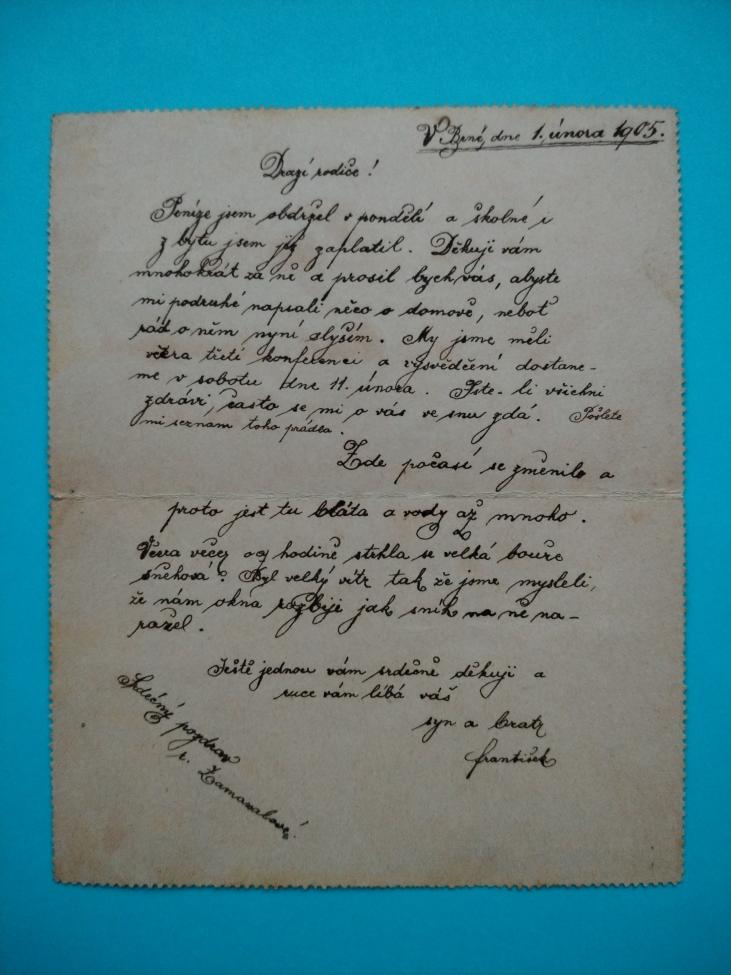 V Brně, dne 1. února 1905.
Drazí rodiče!
Peníze jsem obdržel v pondělí a školné i
z bytu jsem již zaplatil. Děkuji vám
mnohokrát za ně a prosil bych vás, abyste
mi podruhé napsali něco o domově, neboť
rád o něm nyní slyším. My jsme měli
včera třetí konferenci a vysvědčení dostane-
me v sobotu dne 11. února. Jste-li všichni
zdrávi, často se mi o vás ve snu zdá. Pošlete
mi seznam toho prádla.
Zde počasí se změnilo a
proto jest tu bláta a vody až mnoho.
Včera večer o 9 hodině strhla se velká bouře
sněhová? Byl velký vítr tak že jsme mysleli,
že nám okna rozbijí jak sníh na ně na-
razel.
Ještě jednou vám srdečně děkuji a
ruce vám líbá váš
syn a bratr
František
Srdečný pozdrav